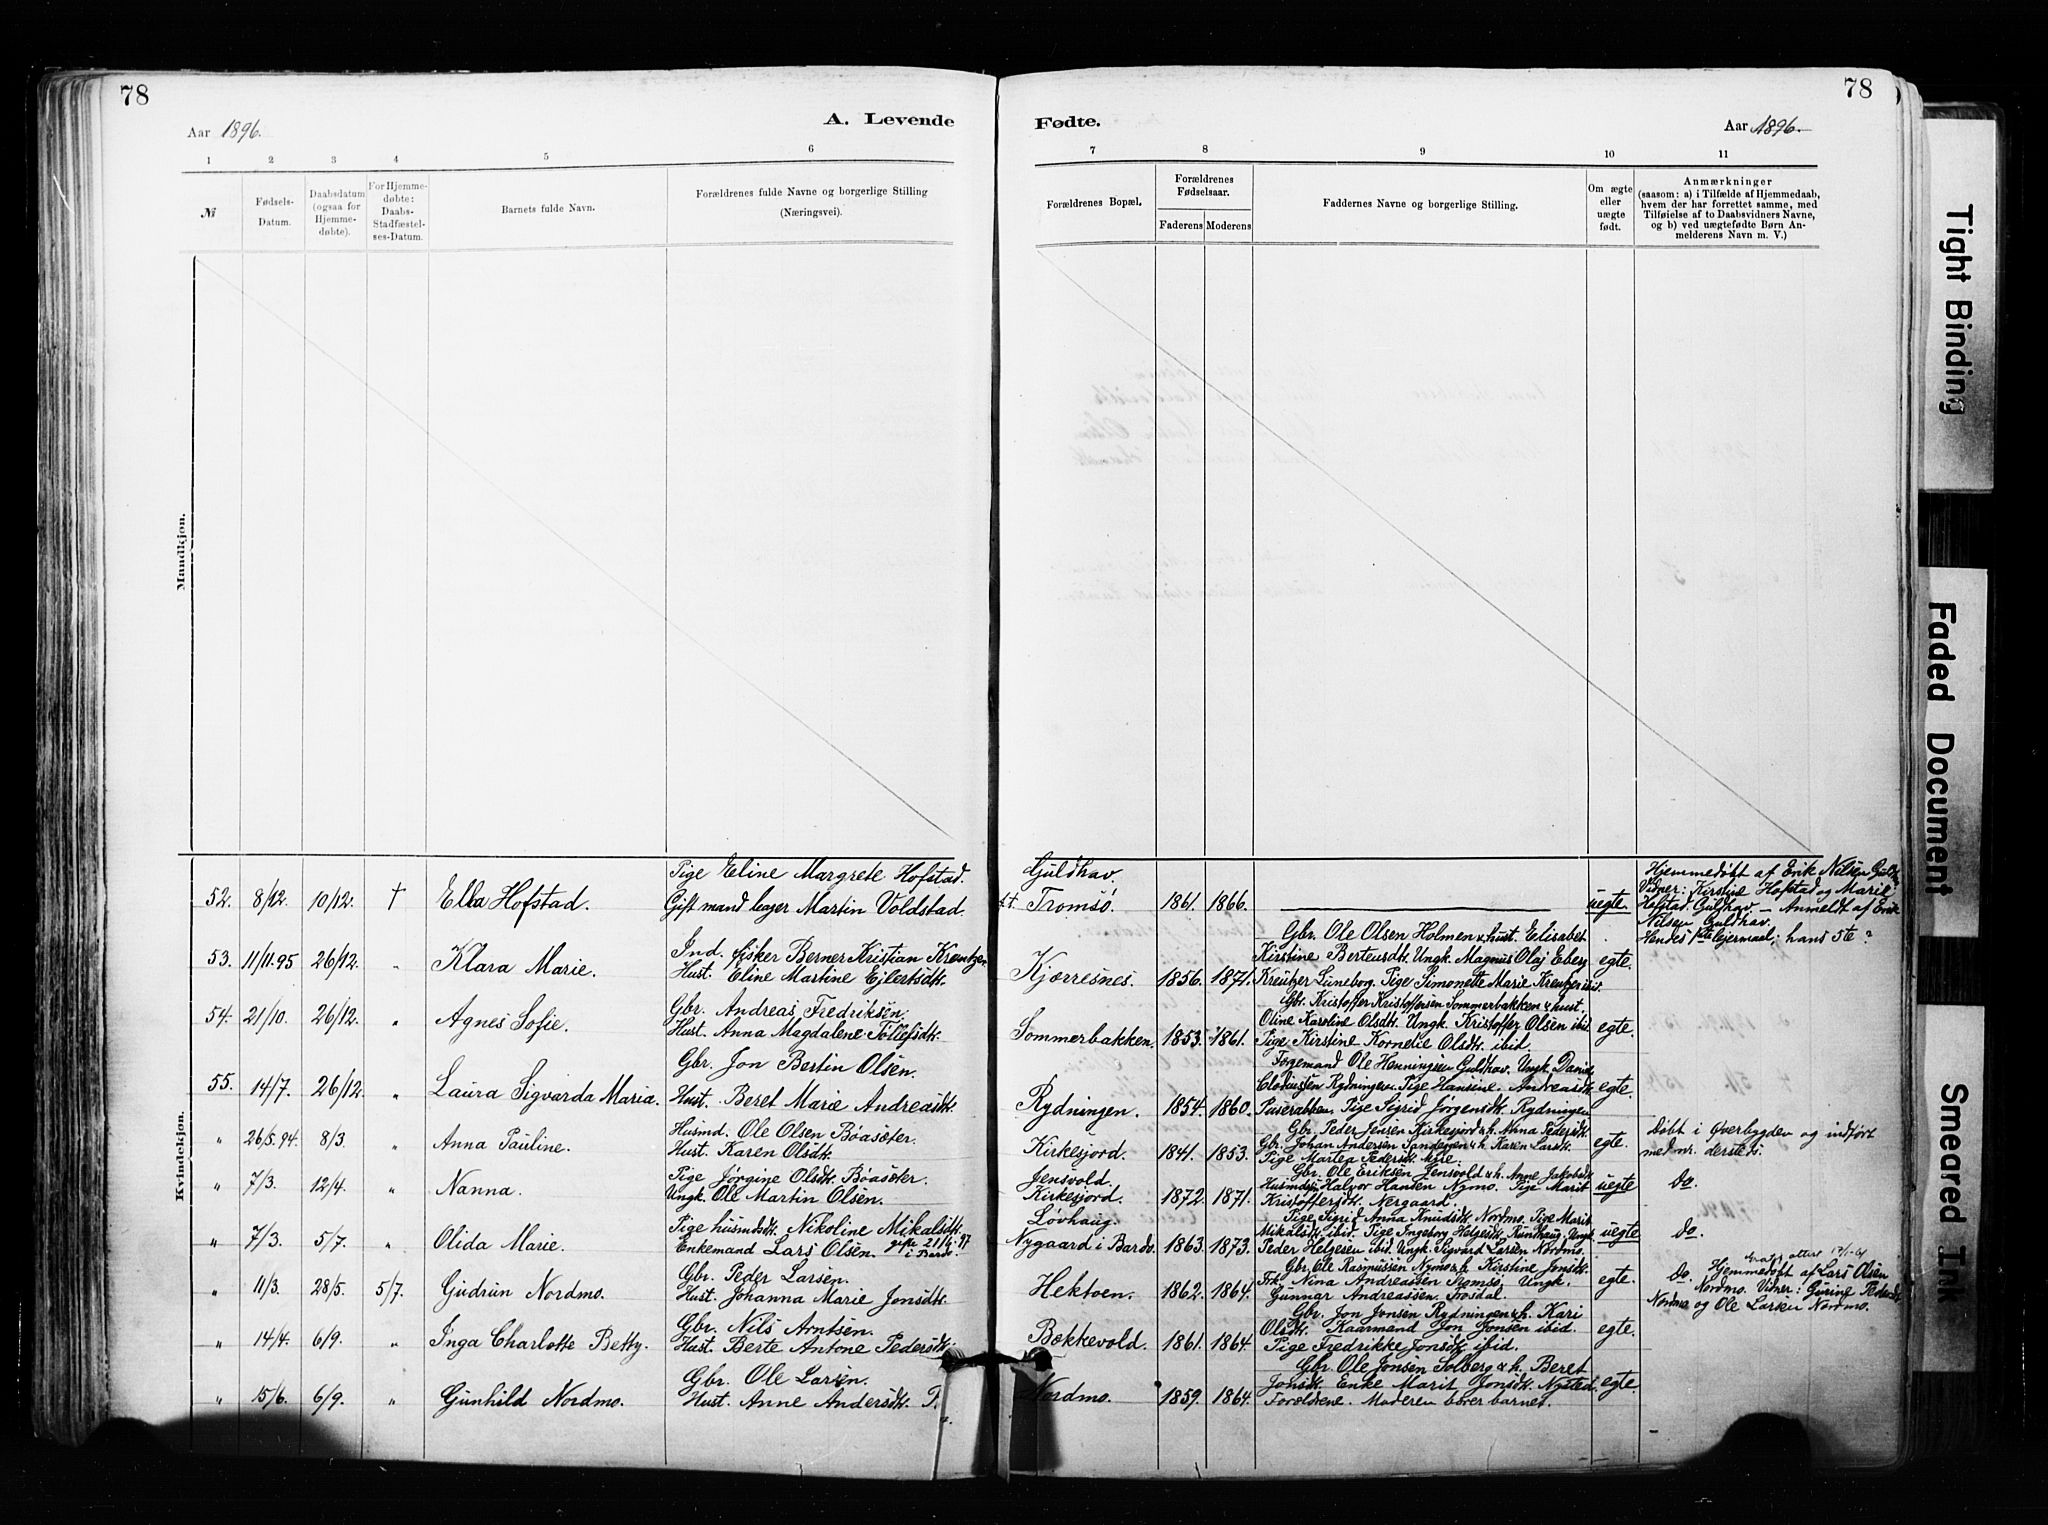 78
78
Aar 1896.
A. Levende
Fødte.
Aar 1896.
1 2 3 4 5 6
7 8 9 10 11
№
Fødsels-Datum.
Daabsdatum (ogsaa for Hjemme-døbte).
For Hjemme-døbte: Daabs-Stadfæstel-ses-Datum.
Barnets fulde Navn.
Forældrenes fulde Navne og borgerlige Stilling
(Næringsvei).
Forældrenes Bopæl.
Forældrenes Fødselsaar.
Faderens Moderens
Faddernes Navne og borgerlige Stilling.
Om ægte eller uægte født.
Anmærkninger
(saasom: a) i Tilfælde af Hjemmedaab,
hvem der har forrettet samme, med
Tilføielse af to Daabsvidners Navne,
og b) ved uægtefødte Børn An-
melderens Navn m. V.)
Mandkjøn.
Kvindekjøn.
52. 8/12. 10/12. † Ella Hofstad.
Pige Eline Margrete Hofstad.
Gift mand Martin Voldstad.
Guldhav.
Tromsø. 1861. 1866. uegte.
Hjemmedøbt af Erik Nilsen
Vidner: Kirstine Hofstad og Marie
Hofstad Guldhav. – Anmeldt af Erik
Nilsen Guldhav.
Hendes 1ste leiermaal; hans 5te?
53. 11/11.95 26/12. " Klara Marie.
Ind. fisker Berner Kristian Kreutzer
Hust. Eline Martine Eilertsdtr.
Kjærresnes. 1856. 1871.
Gbr. Ole Olsen Holmen & hust. Elisabet
Kirstine Berteusdtr. Ungk. Magnus Olaj Eberg
Kreutzer Luneborg. Pige Simonette Marie Kreutzer ibid.
egte.
54. 21/10. 26/12. " Agnes Sofie.
Gbr. Andreas Fredriksen.
Hust. Anna Magdalene Tollefsdtr.
Sommerbakken. 1853. 1861.
Gbr. Kristoffer Kristoffersen Sommerbakken & hust.
Oline Karoline Olsdtr. Ungk. Kristoffer Olsen ibid.
Pige Kirstine Kornelie Olsdtr. ibid
egte.
55. 14/7. 26/12. " Laura Sigvarda Maria.
Gbr. Jon Bertin Olsen.
Hust. Beret Marie Andreasdtr.
Rydningen. 1854. 1860.
Føgemand Ole Henningsen Guldhav. Ungk. Daniel
Clodiussen Rydningen. Pige Hansine Andreasdtr.
Pige Sigrid Jørgensdtr. Rydningen
egte.
" 26/5.94. 8/3. " Anna Pauline.
Husmd. Ole Olsen Bøasæter.
Hust. Karen Olsdtr.
Kirkesjord. 1841. 1853.
Gbr. Peder Jensen Kirkesjord & h. Nina Pedersdtr.
Gbr. Johan Andersen & h. Karen Larsdtr.
Pige Martea Pedersdtr. Myre.
egte.
Døbt i Øverbygden og indført
med nr. dersteds.
" 7/3. 12/4. " Nanna.
Pige Jørgine Olsdtr. Bøasæter.
Ungk. Ole Martin Olsen.
Jensvold.
Kirkesjord. 1872. 1871.
Gbr. Ole Eriksen Jensvold & h. Anne Jakobsdtr.
Halvor Hansen Nymo. Pige Marit
Kristoffersdtr. Nergaard.
uegte
Do.
" 7/3. 5/7. " Olida Marie.
Pige husmdsdtr. Nikoline Mikalsdtr.
Enkemand Lars Olsen. gifte 21/4.97 i Bardo.
Løvhaug.
Nygaard i Bardo. 1863. 1873.
Pige Sigrid Anna Knudsdtr. Nordmo. Pige Marit
Mikalsdtr. ibid. Pige Ingeborg Helgesdtr. Rundhaug. Ungk.
Peder Helgesen ibid. Ungk. Sigvard Larsen Nordmo.
uegte
Do.
" 11/3. 28/5. 5/7. Gudrun Nordmo.
Gbr. Peder Larsen.
Hust. Johanna Marie Jonsdtr.
Hektoen. 1862. 1864.
Gbr. Ole Rasmussen Nymo & h. Kirstine Jonsdtr.
Frk. Nina Andreassen Tromsø. Ungk.
Gunnar Andreassen Frosdal.
egte.
Do. Hjemmedøbt af Lars Olsen
Nordmo. Vidner: Gurine
Nordmo og Ole Larsen Nordmo.
" 14/4. 6/9. " Inga Charlotte Betty.
Gbr. Nils Arntsen.
Hust. Berte Antone Pedersdtr.
Bækkevold. 1861. 1864.
Gbr. Jon Jonsen Rydningen & h. Kari
Olsdtr. Kaarmand Jon Jonsen ibid.
Pige Fredrikke Jonsdtr. ibid.
egte.
" 15/6. 6/9. " Gunhild Nordmo.
Gbr. Ole Larsen.
Hust. Anne Andersdtr.
Nordmo. 1859. 1864.
Gbr. Ole Jonsen Solberg & h. Beret
Jonsdtr. Enke Marit Jonsdtr. Nysted
Forældrene. Moderen bærer barnet.
egte.
Tight Binding
Faded Document
Smeared Ink